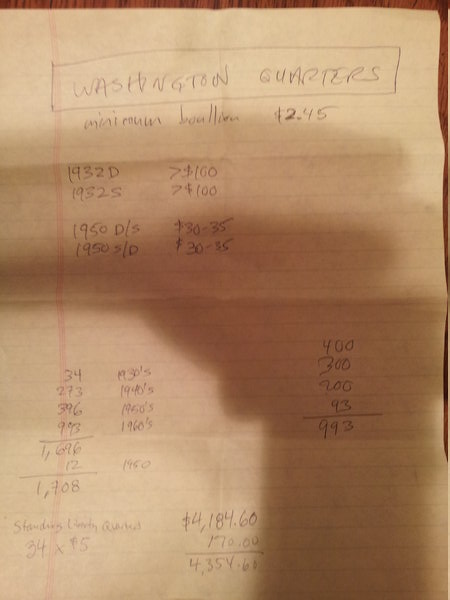 WASHINGTON QUARTERS
minimum boullion $2.45
1932 D >$100
1932 S >$100
1950 D/S $30-35
1950 S/D $30-35
400
300
200
93
993
34 1930's
273 1940's
396 1950's
993 1960's
1,696
12 1950
1,708
Standing Liberty Quarters
34 x $5
$4,184.60
170.00
4,354.60